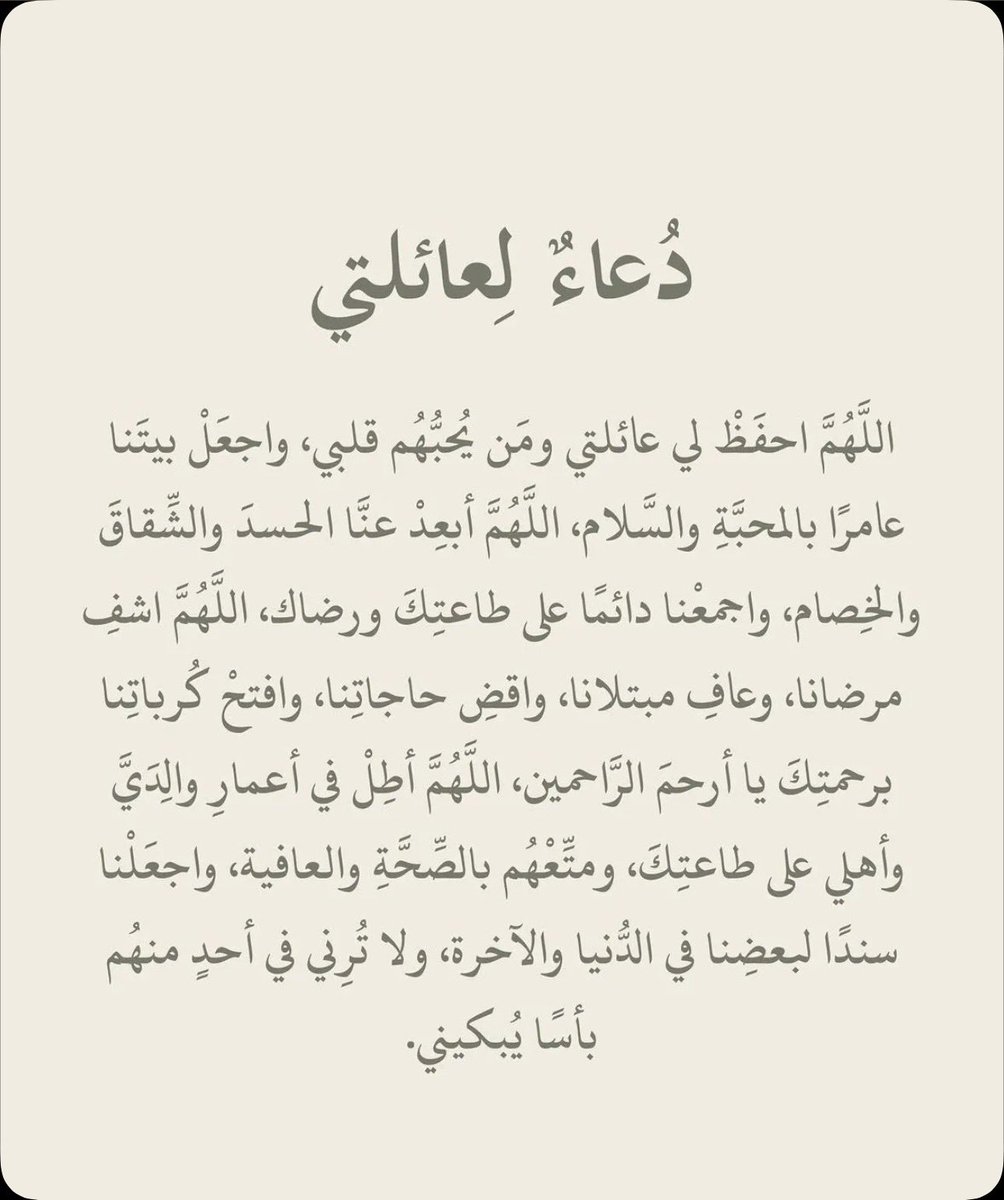 دُعاءٌ لِعائلتي
اللَّهُمَّ احفَظْ لي عائلتي ومَن يُحبُّهُم قلبي، واجعَلْ بيتَنا
عامرًا بالمحبَّةِ والسَّلام، اللَّهُمَّ أبعِدْ عنَّا الحسدَ والشِّقاقَ
والخِصام، واجمعْنا دائمًا على طاعتِكَ ورضاك، اللَّهُمَّ اشفِ
مرضانا، وعافِ مبتلانا، واقضِ حاجاتِنا، وافتحْ كُرباتِنا
برحمتِكَ يا أرحمَ الرَّاحمين، اللَّهُمَّ أطِلْ في أعمارِ والِدَيَّ
وأهلي على طاعتِكَ، ومتِّعْهُم بالصِّحَّةِ والعافية، واجعَلْنا
سندًا لبعضِنا في الدُّنيا والآخرة، ولا تُرِني في أحدٍ منهُم
بأسًا يُبكيني.